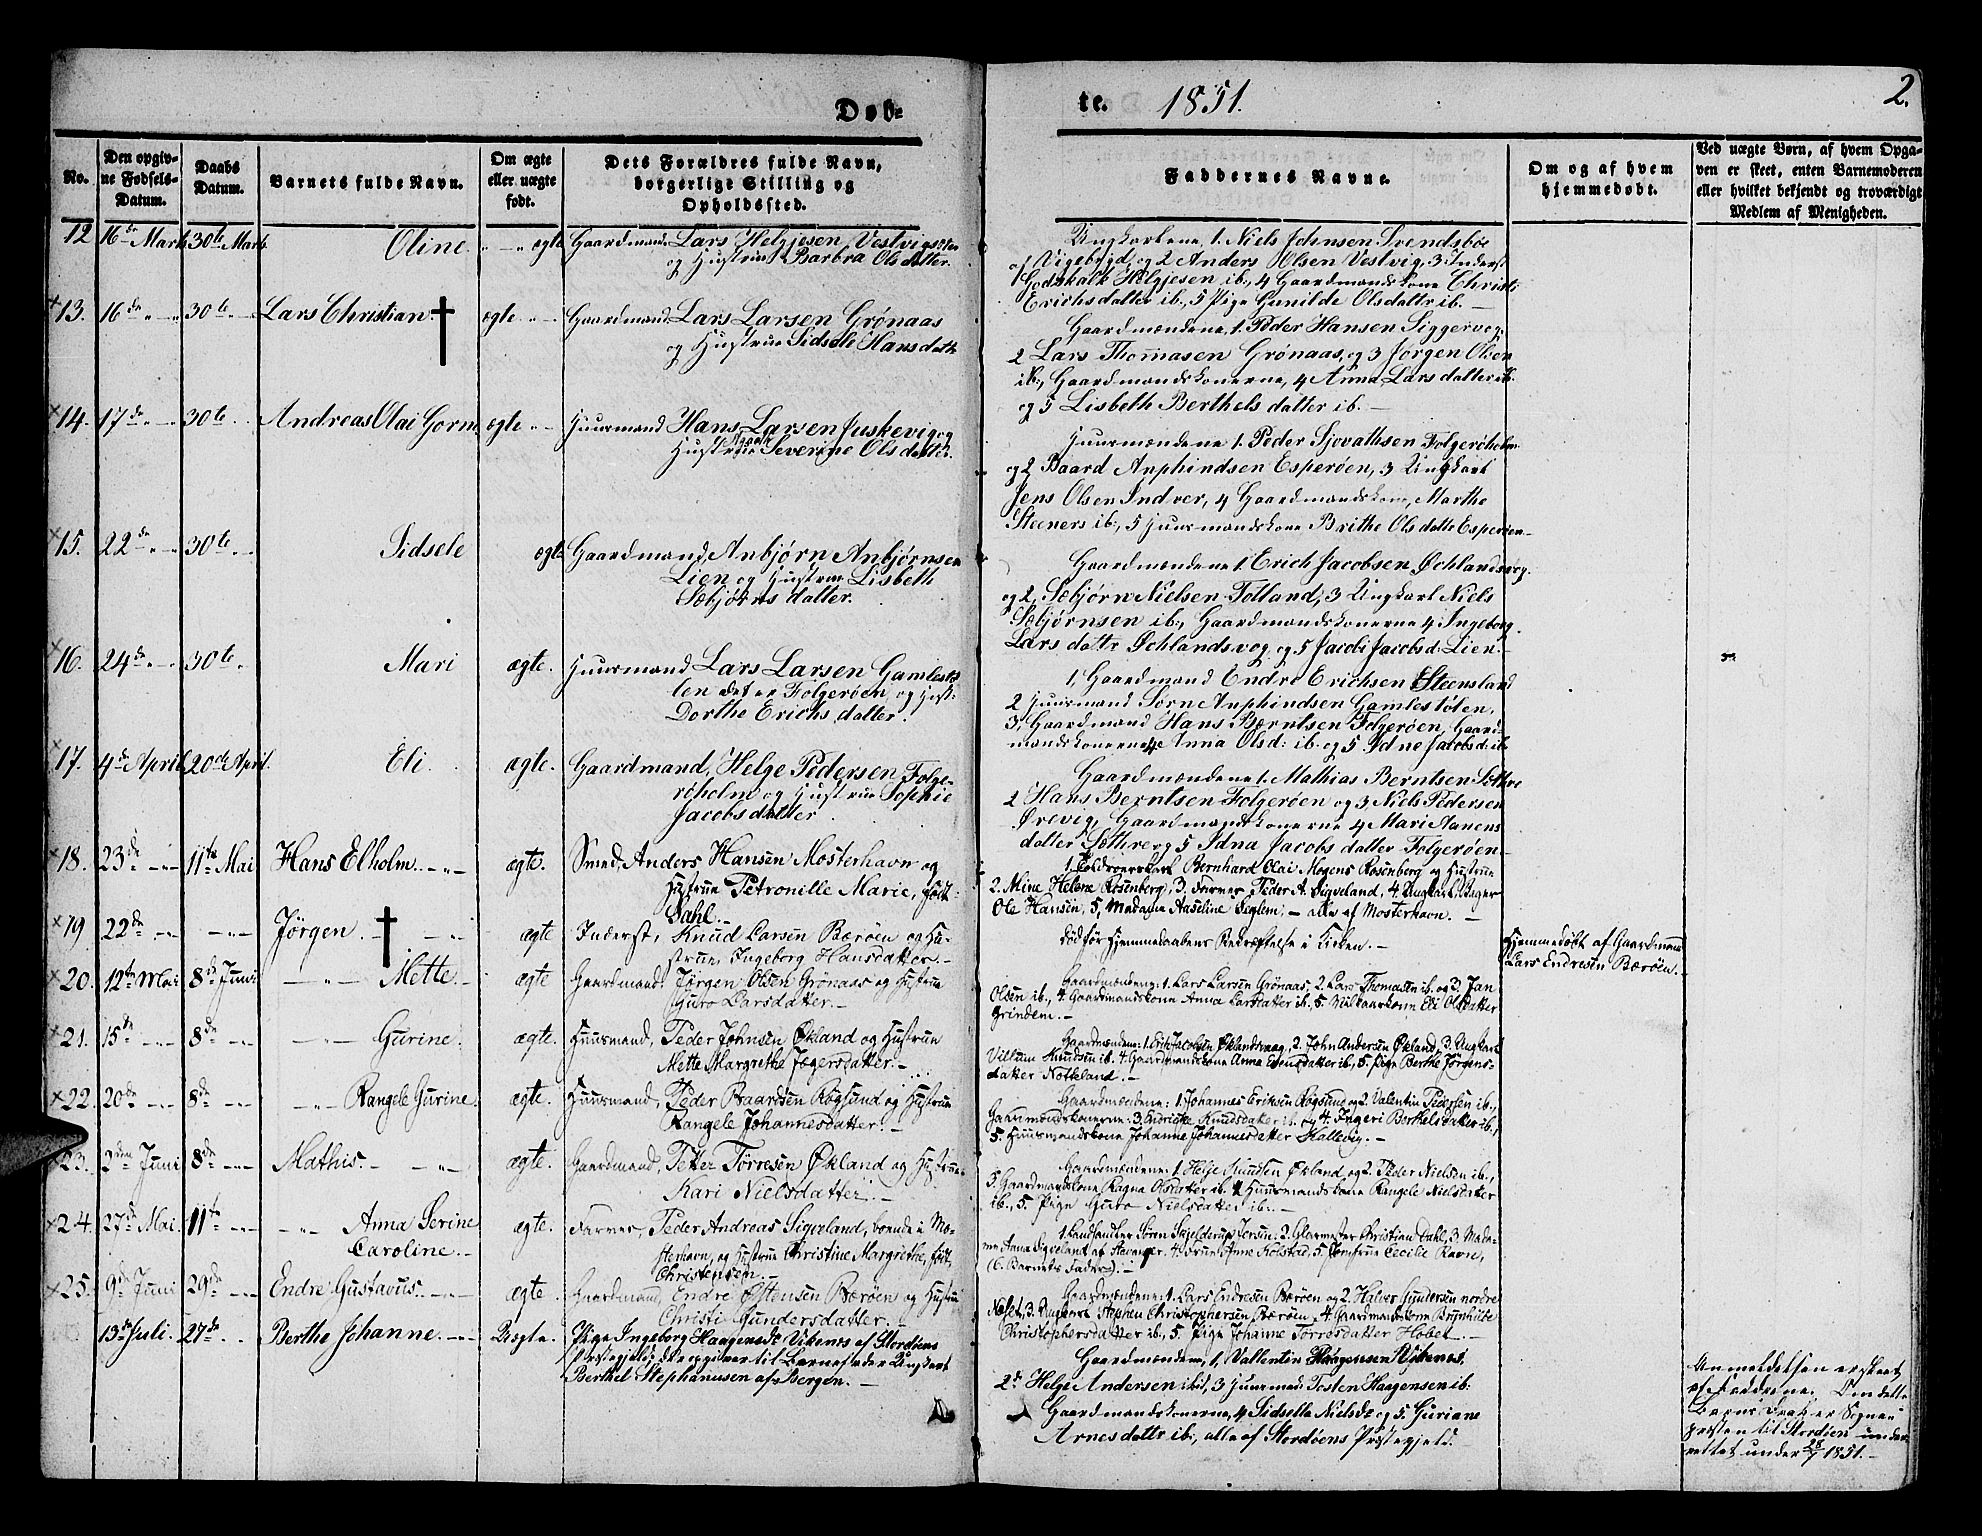 Døb-
te. 1851.
2.
No.
Den opgiv-
ne Fødsels-
Datum.
Daabs
Datum.
Barnets fulde Navn.
Om ægte
eller uægte
født.
Dets Forældres fulde Navn,
borgerlige Stilling og
Opholdssted.
Faddernes Navne.
Om og af hvem
hjemmedøbt.
Ved uægte Børn, af hvem Opga-
ven er skeet, enten Barnemoderen
eller hvilket bekjendt og troværdigt
Medlem af Menigheden.
12 16de Marts 30te Marts Oline ægte Gaardmand Lars Helgjesen Vestvig
og Hustrue Barbra Olsdatter.
Ungkarlene, 1. Niels Johnsen Svendsbøe
af Vigebygd, og 2 Anders Olsen Vestvig, 3 Inderst
Godskalk Helgjesen ib., 4 Gaardmandskone Christi
Erichsdatter ib., 5 Pige Gunilde Olsdattr ib. —
13. 16de 30te Lars Christian. ægte Gaardmand Lars Larsen Grønaas
og Hustrue Sidsele Hansdattr
Gaardmændene, 1. Peder Hansen Siggervog
2 Lars Thomasen Grønaas, og 3 Jørgen Olsen
ib., Gaardmandskonerne, 4 Anna Larsdatter ib.
og 5 Lisbeth Berthelsdatter ib. —
14. 17de 30te Andreas Olai Gorm ægte Huusmand Hans Larsen Juskevig og
Hustrue Agathe Severine Olsdatter.
Huusmændene 1. Peder Sjovathsen Folgerøholm
og 2 Baard Anphindsen Esperøen, 3 Ungkarl
Jens Olsen Indver, 4 Gaardmandskone, Marthe
Steeners ib., 5 Huusmandskone Brithe Olsdatter Esperøen—
15. 22de 30te Sidsele ægte Gaardmand, Anbjørn Anbjørnsen
Lien og Hustrue Lisbeth
Sæbjørnsdatter.
Gaardmændene 1. Erich Jacobsen Øchlandsvog.
og 2, Sæbjørn Nielsen Totland, 3 Ungkarl Niels
Sæbjørnsen ib., Gaardmandskonerne 4 Ingeborg
Larsdattr Øchlandsvog, og 5 Jacobi Jacobsd: Lien.—
16. 24de 30te Mari ægte. Huusmand Lars Larsen Gamlestø-
len Folgerøen og Hust:
Dorthe Erichsdatter.
1, Gaardmand Endre Erichsen Steensland
2 Huusmand Sørne Anphindsen Gamlestølen,
3, Gaardmand Hans Bærntsen Folgerøen, Gaard-
mandskonerne 4 Anna Olsd: ib. og 5. Idne Jacobsd: ib.
17. 4de April 20de April. Eli. ægte. Gaardmand, Helge Pedersen Folge-
røholm og Hustrue Sophie
Jacobsdatter.
Gaardmændene 1. Mathias Berntsen Sætre
2 Hans Berntsen Folgerøen og 3 Niels Pedersen
Ørevig, Gaardmandskonerne 4 Mari Aanens
datter Sætre og 5 Idna Jacobsdatter Folgerøen—
18. 23de 11te Mai Hans Elholm. ægte. Smed, Anders Hansen Mosterhavn og
Hustrue Petronille Marie, født
Dahl.—
1. Toldroerskarl Bernhard Olai Mogens Rosenberg og Hustrue
2. Mine Helene Rosenberg, 3. Farver Peder A. Sigveland, 4 Ungkarl, Bager
Ole Hansen, 5, Madame Aaseline Seglem; — alle af Mosterhavn. —
19 22de Jørgen. ægte Inderst, Knud Larsen Bærøen og Hu-
strue, Ingeborg Hansdatter.—
Død før Hjemmedaabens Bekræftelse i Kirken. —
Hjemmedøbt af Gaardmand
Lars Endresen Bærøen.—
20. 12te Mai 8de Juni Mette. ægte Gaardmand Jørgen Olsen Grønaas og Hustrue
Guro Larsdatter.—
Gaardmændene: 1. Lars Larsen Grønaas, 2. Lars Thomasen ib. og 3. Jan
Olsen ib., 4. Gaardmandskone Anna Larsdatter ib., 5. Vilkaarkone Eli Olsdatter
Grindem.—
21. 15de 8de Gurine. ægte. Huusmand, Peder Johnsen Økland og Hustrue
Mette Margrethe Jægersdatter.—
Gaardmændene: 1. Erik Jacobsen Øklandsvaag, 2. John Andersen Økland, 3. Ungkarl
Villum Knudsen ib. 4. Gaardmandskone Anna Evensdatter ib., 5. Pige Berthe Jørgens-
datter Notteland.—
22. 20de 8de Rangele Gurine. ægte. Huusmand, Peder Baardsen Røgsund og Hustrue
Rangele Johannesdatter.—
Gaardmændene: 1. Johannes Eriksen Røgsund og 2. Valentin Pedersen ib.,
Gaardmandskonerne: 3. Endrikke Knudsdatter ib. og 4. Ingeri Berthelsdatter ib.,
5. Huusmandskone Johanne Johannesdatter Kallevig.—
23. 2den Juni 8de Mathis.— ægte. Gaardmand, Petter Tørresen Økland og Hustrue
Kari Nielsdatter.—
Gaardmændene: 1. Helje Knudsen Økland og 2. Peder Nielsen ib.,
3. Gaardmandskone Ragna Olsdatter ib. 4. Huusmandskone Rangele Nielsdatter
ib., 5. Pige Guro Nielsdatter ib.—
24. 27de Mai. 11te Anna Serine
Caroline.— ægte. Farver, Peder Andreas Sigveland, boende i Mo-
sterhavn, og Hustrue Christine Margrethe, født
Christensen.—
1. Landhandler Søren Skjelderup Jersin, 2. Glarmester Christian Dahl, 3. Mada-
me Anne Sigveland af Stavanger, 4. Frue Anne Kolstad, 5. Jomfrue Cecilie Ravn,
(6. Barnets Fader).—
25. 9de Juni 29de Endre Gustavus.— ægte. Gaardmand, Endre Østensen Bærøen og Hustrue
Christi Gundersdatter.—
Gaardmændene: 1. Lars Endresen Bærøen og 2. Halvor Gundersen nordre
Næset, 3. Ungkarl Stephen Christophersen Bærøen, 4. Gaardmandskone Brynhilde
Christophersdatter ib., 5. Pige Johanne Torresdatter Hobet.—
13de Juli. 27de Berthe Johanne. Uægte. Pige Ingeborg Haagensdr. Vikenes af Stordøens
Præstegjeld, der opgiver til Barnefader Ungkarl
Berthel Stephanusen af Bergen.—
Gaardmændene, 1, Vallentin Haagensen Vikenes,
2de Helge Andersen ibid, 3 Huusmand Tosten Haagensen ib:
Gaardmandskonerne, 4 Sidsella Nielsdr og 5. Guriane
Arnesdattr ib:, alle af Stordøens Præstegjeld.
Anmeldelsen er skeet
af Forældrene. Om dette
Barns Daab er Sogne-
præsten til Stordøen under-
rettet under 28/7 1851.—